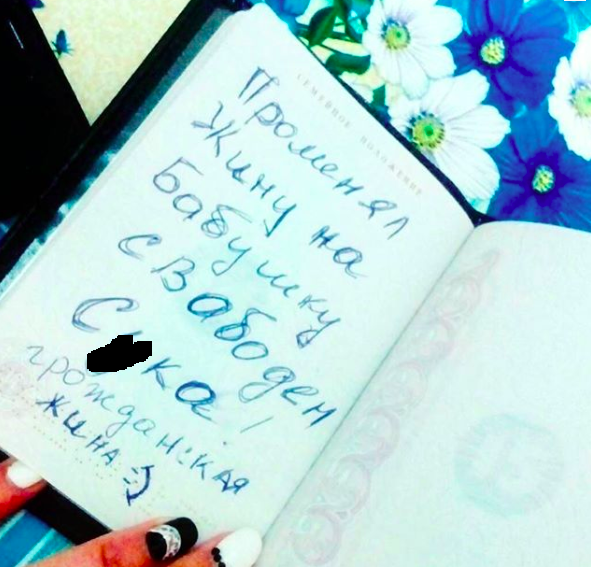 СЕМЕЙНОЕ ПОЛОЖЕНИЕ
Променял
Жину на
Бабушку
сВабоден
грожданская
жина :)